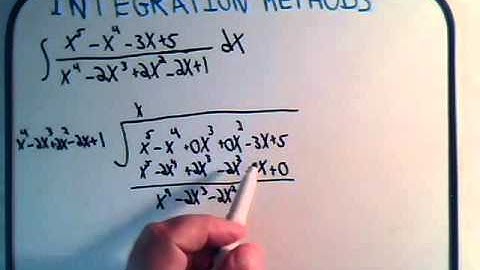 INTEGRATION METHODS
∫ (x⁵ - x⁴ - 3x + 5)/(x⁴ - 2x³ + 2x² - 2x + 1) dx
x
x⁴ - 2x³ + 2x² - 2x + 1 x⁵ - x⁴ + 0x³ + 0x² - 3x + 5
x⁵ - 2x⁴ + 2x³ - 2x² x + 0
x⁴ - 2x³ - 2x²